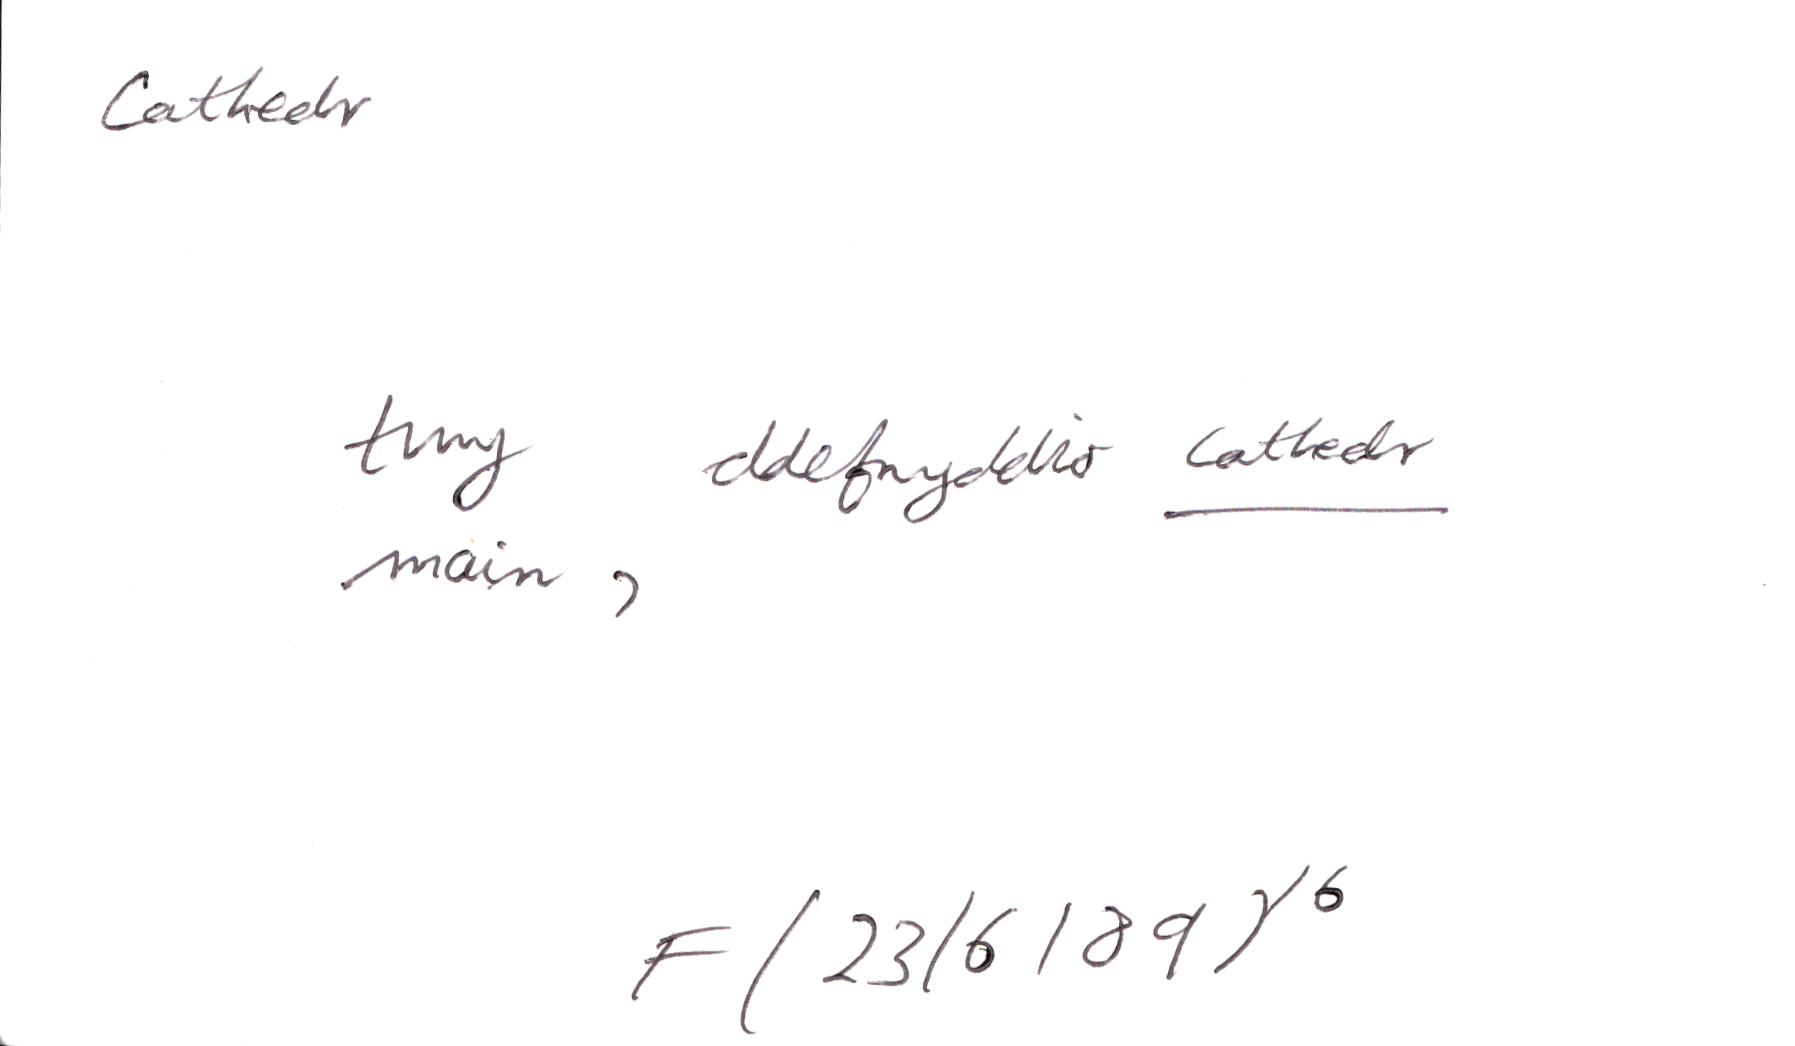 Cathedr
trwy ddefnyddio cathedr
main,
F(23/6/89)/6